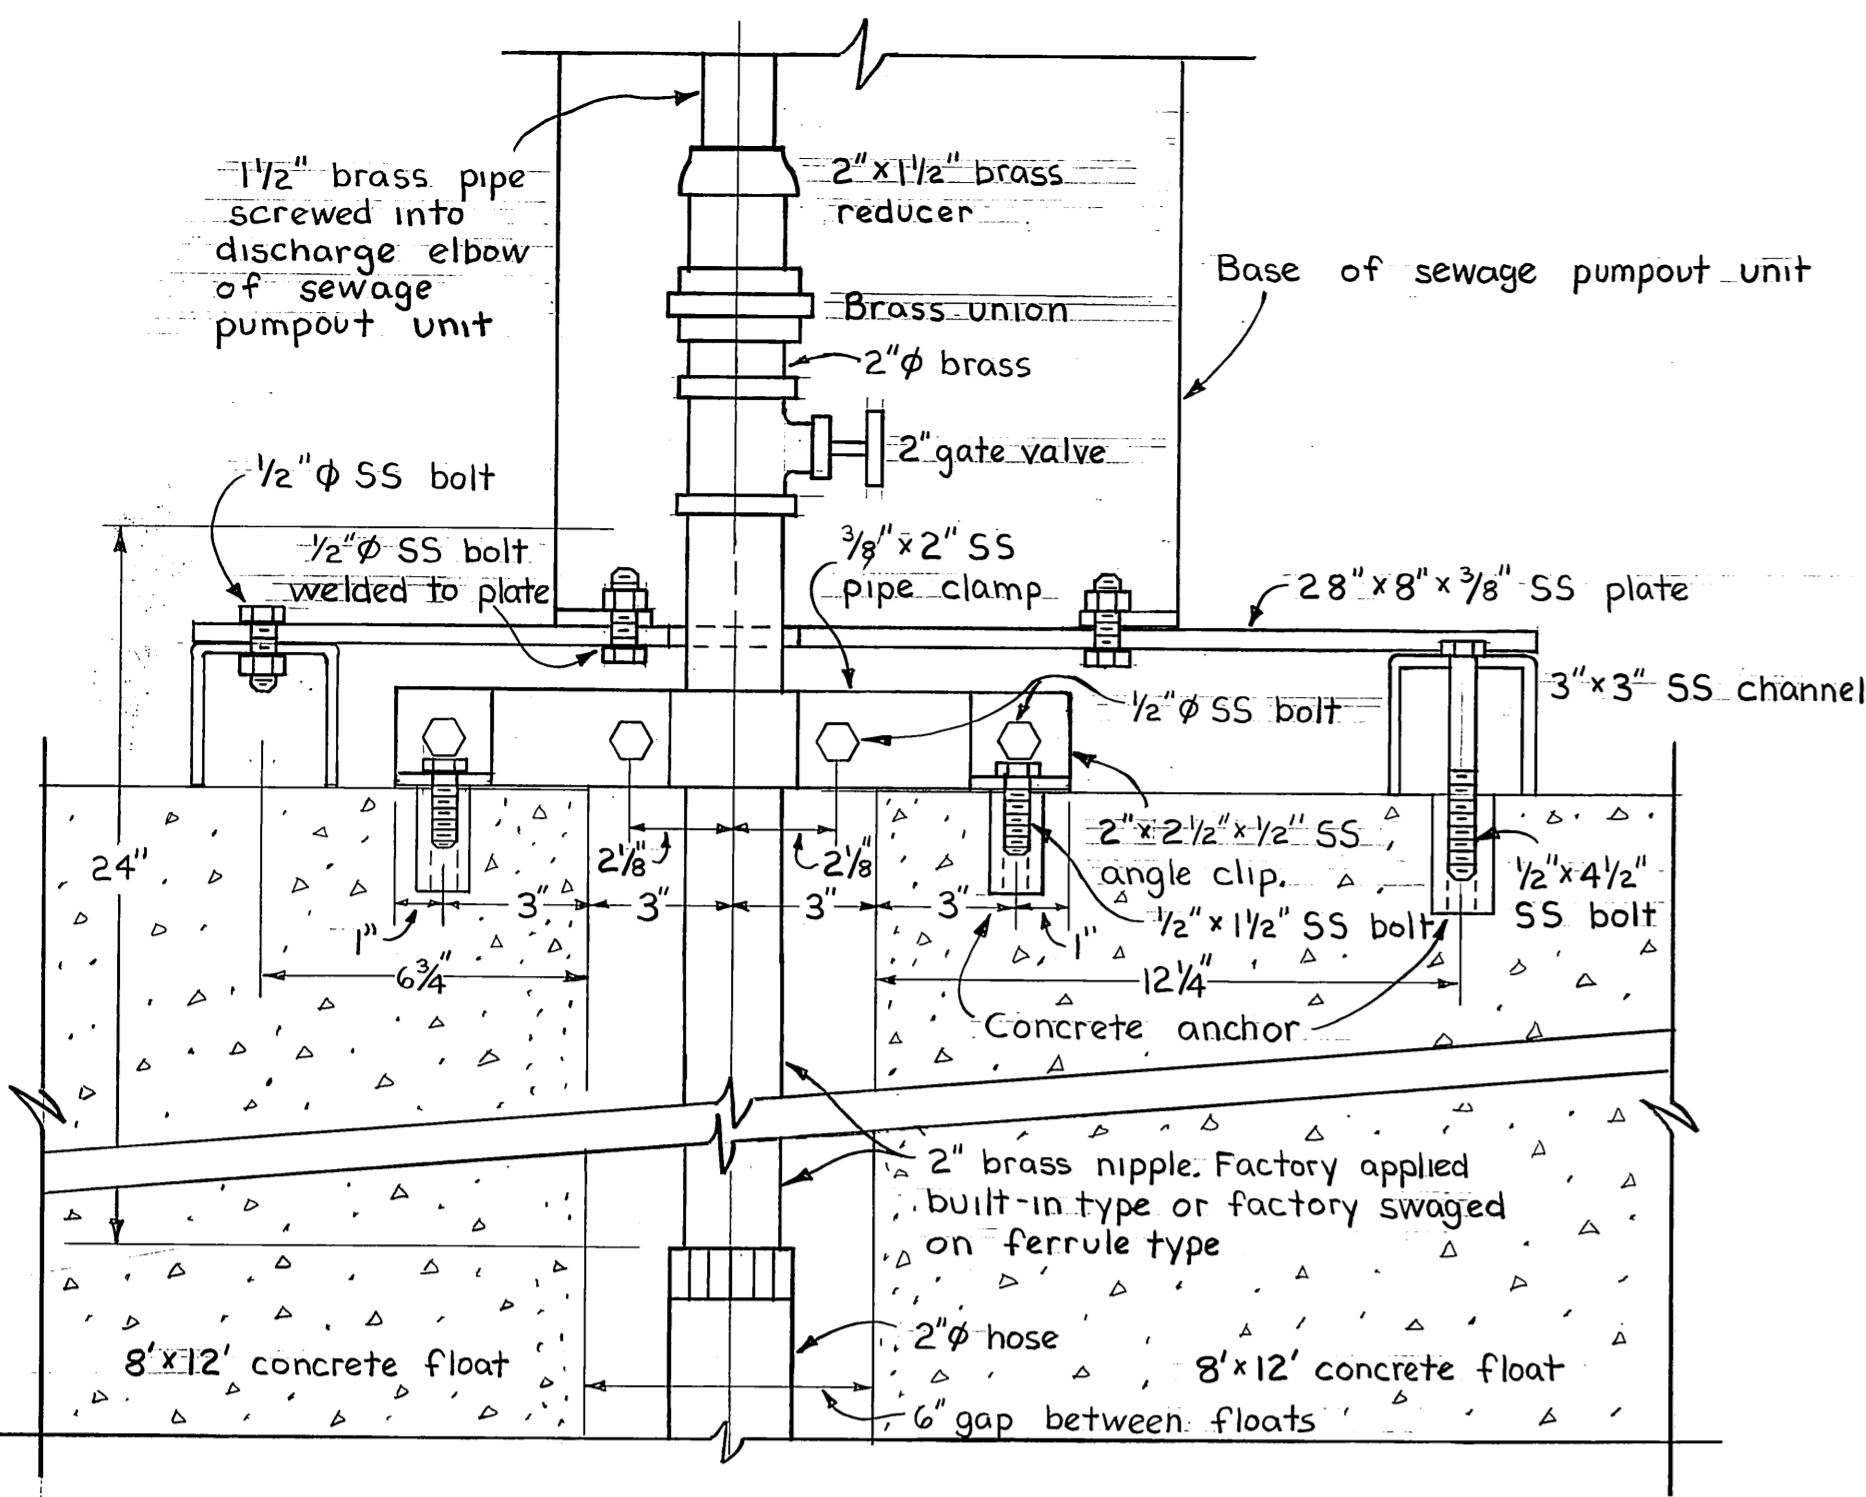 1½" brass pipe
screwed into
discharge elbow
of sewage
pumpout unit
2"x1½" brass
reducer
Base of sewage pumpout unit
Brass union
2"ϕ brass
2" gate valve
½"ϕ SS bolt
½"ϕ SS bolt
welded to plate
⅜"x2" SS
pipe clamp
28"x8"x⅜" SS plate
3"x3" SS channel
½"ϕ SS bolt
24"
2⅛"
2⅛"
2"x2½"x½" SS
angle clip.
½"x4½"
SS bolt
3"
3"
3"
3"
1"
1"
½"x1½" SS bolt
6¾"
12¼"
Concrete anchor
2" brass nipple. Factory applied
built-in type or factory swaged
on ferrule type
2"ϕ hose
8'x12' concrete float
8'x12' concrete float
6" gap between floats